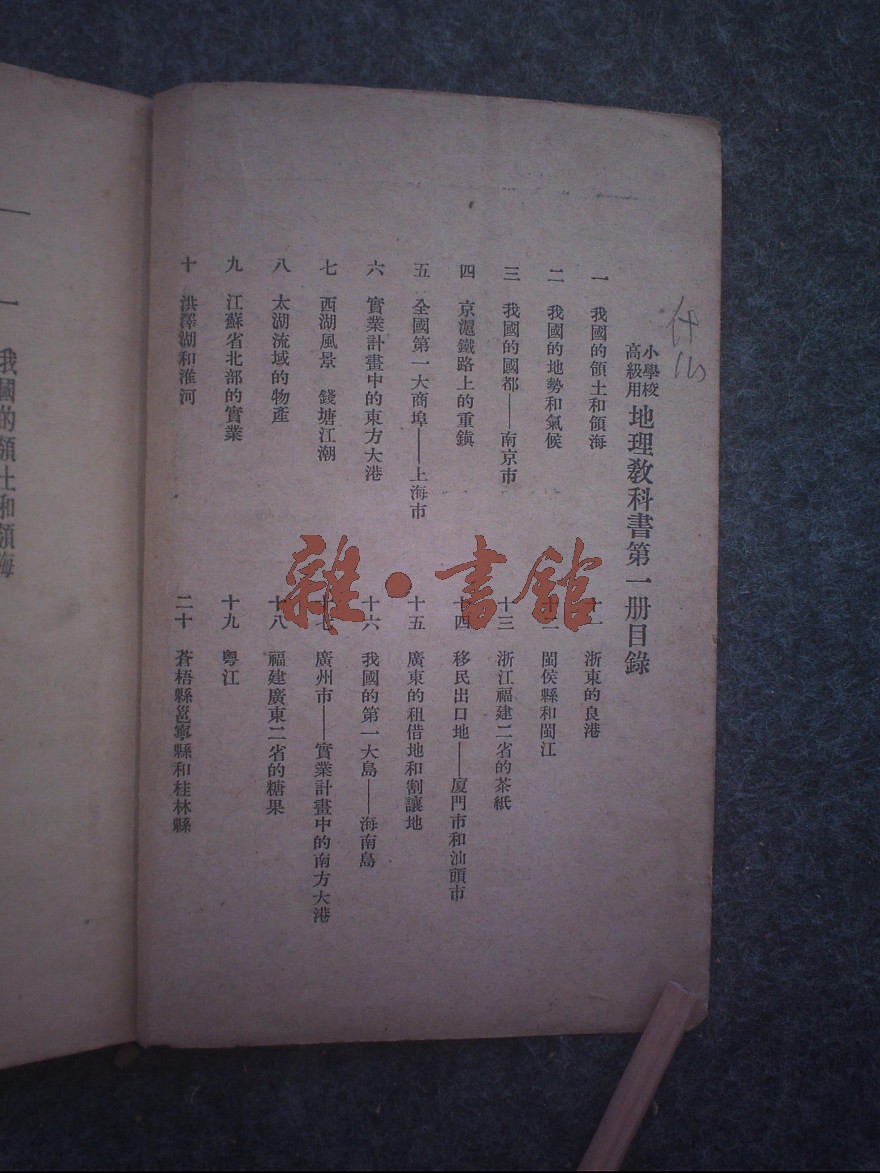 小學校高級用 地理敎科書第一册目錄
一 我國的領土和領海
二 我國的地勢和氣候
三 我國的國都——南京市
四 京滬鐵路上的重鎮
五 全國第一大商埠——上海市
六 實業計畫中的東方大港
七 西湖風景 錢塘江潮
八 太湖流域的物產
九 江蘇省北部的實業
十 洪澤湖和淮河
十一 浙東的良港
十二 閩侯縣和閩江
十三 浙江福建二省的茶紙
十四 移民出口地——廈門市和汕頭市
十五 廣東的租借地和割讓地
十六 我國的第一大島——海南島
十七 廣州市——實業計畫中的南方大港
十八 福建廣東二省的糖果
十九 粵江
二十 蒼梧縣邕寧縣和桂林縣
一 我國的領土和領海
雜·書館